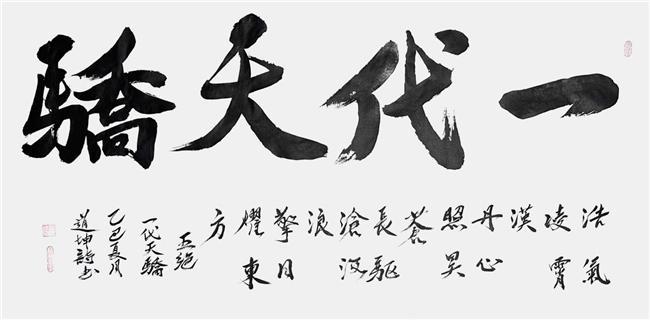 一代天驕
浩氣
凌霄
漢
丹心
照昊
蒼
長驅
滄
浪
擎日
燿東
方
五絕
一代天驕
乙巳夏月
道坤詩书